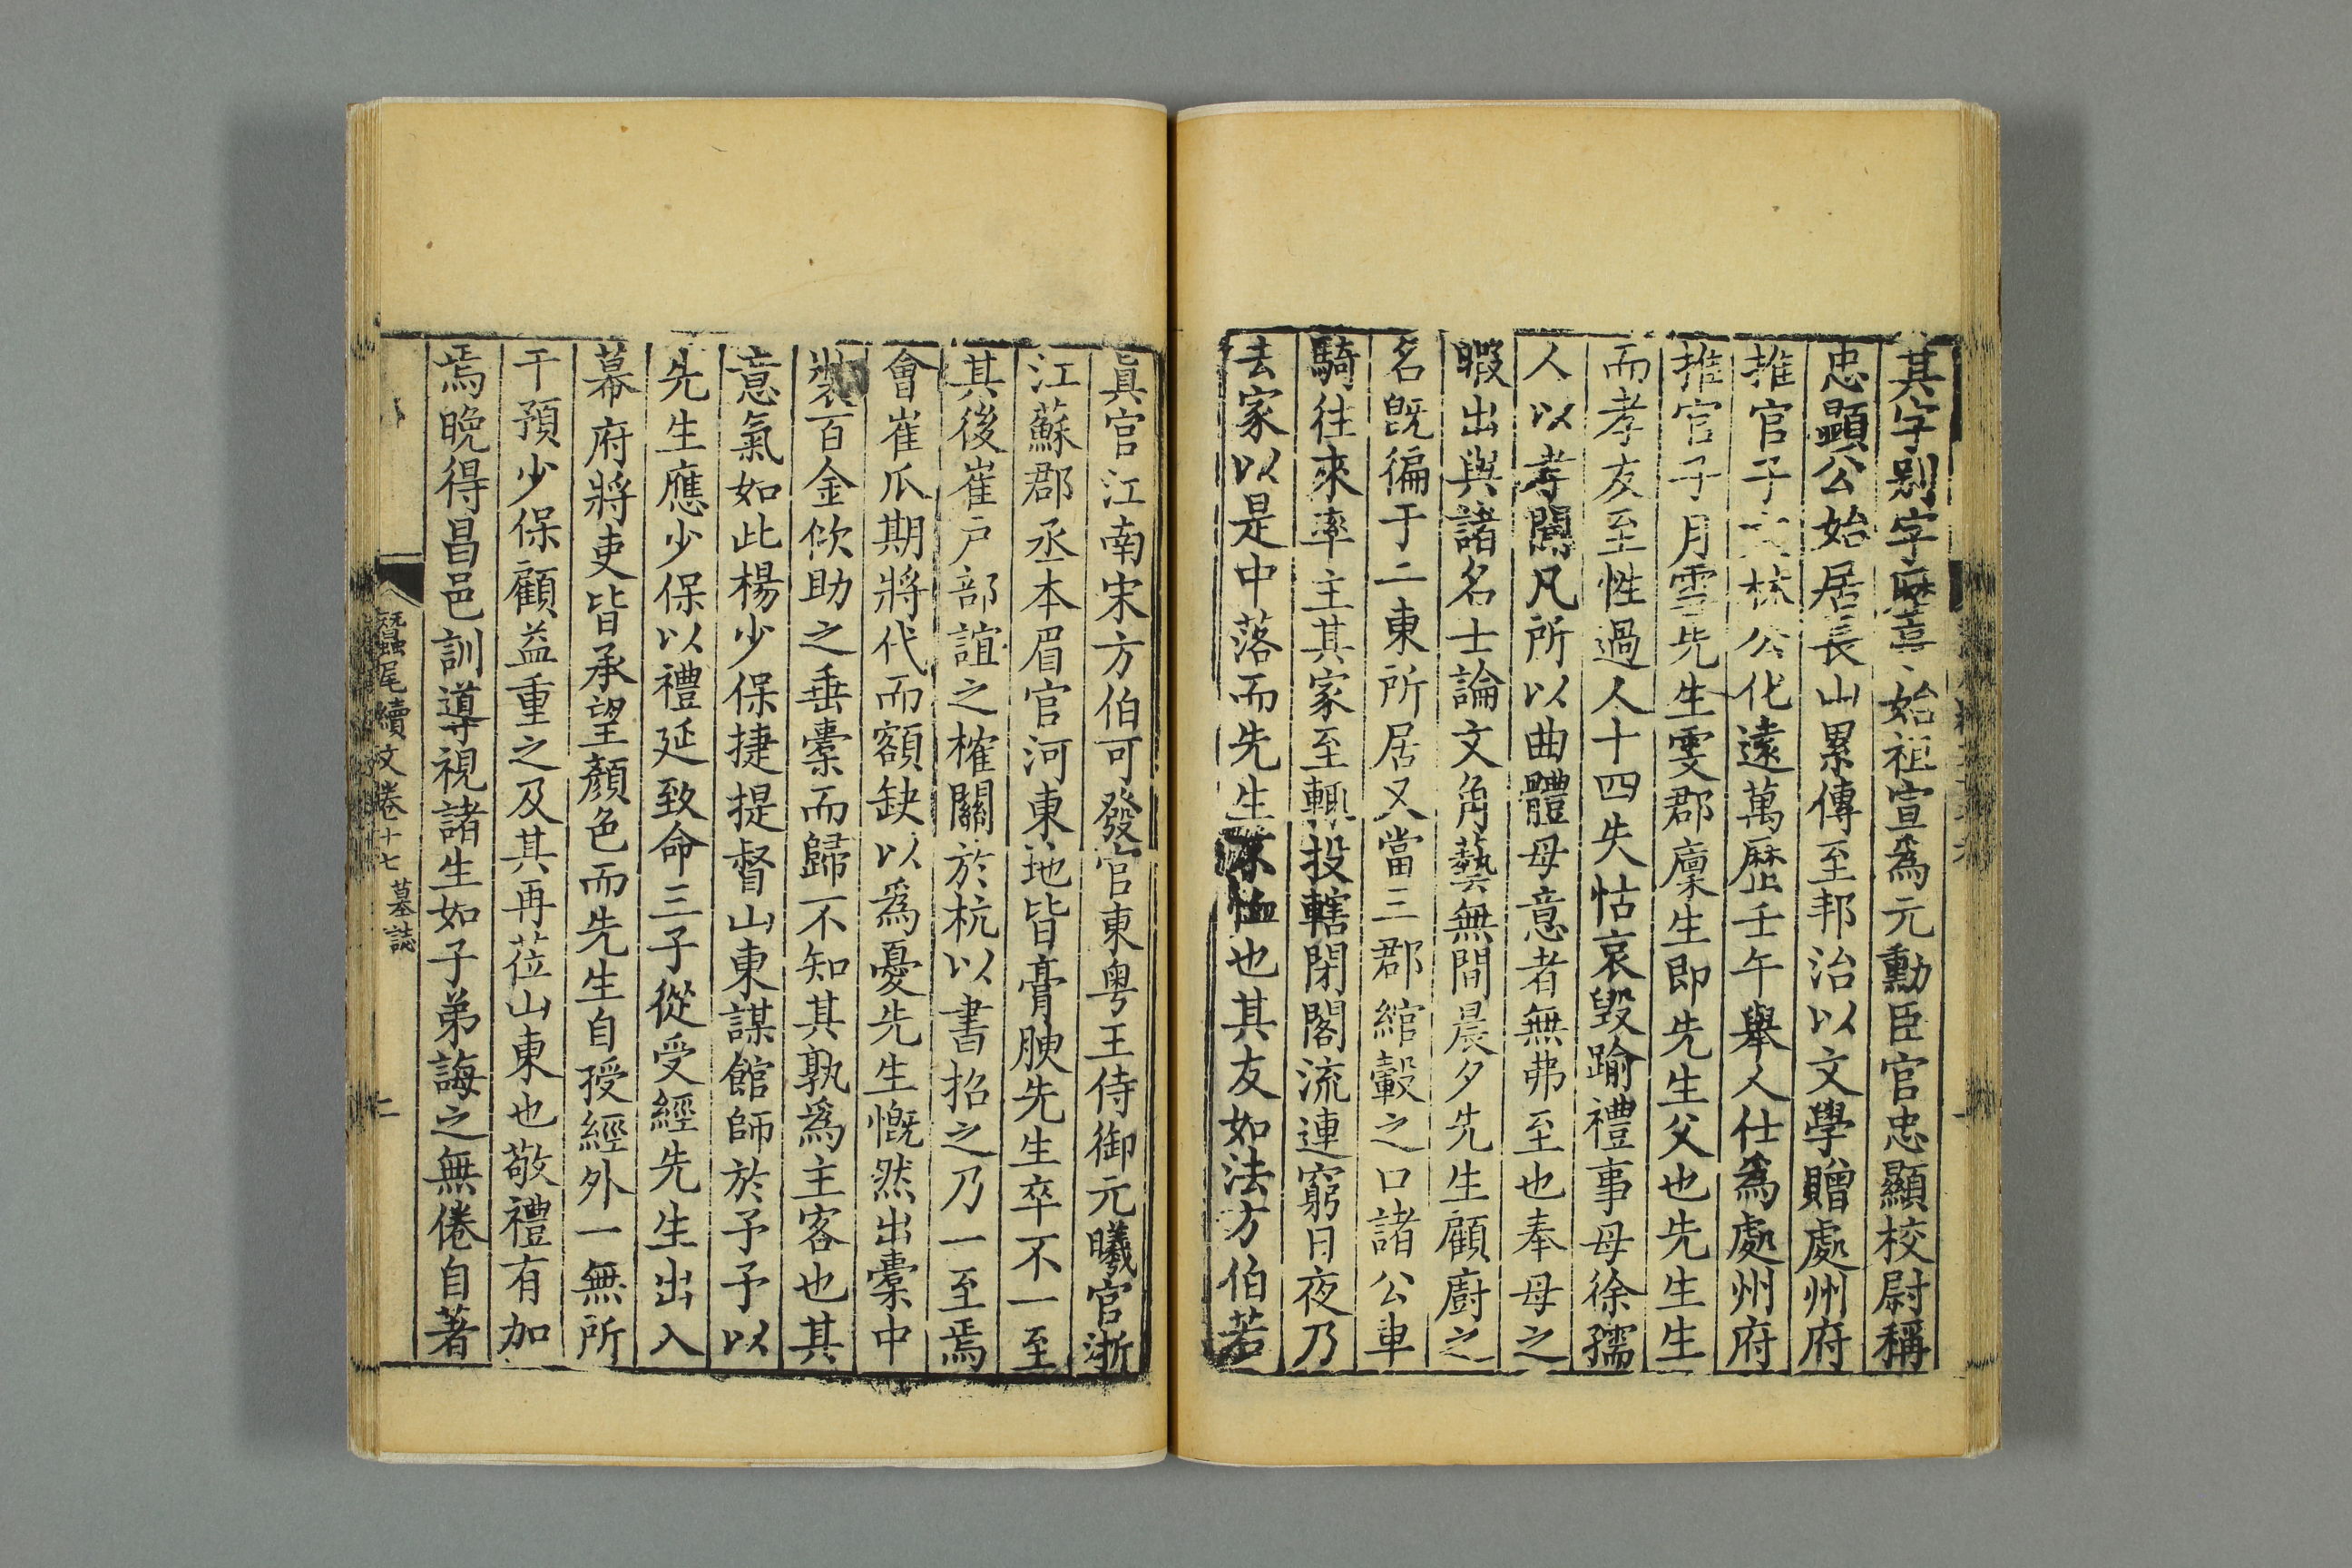 其字别字㕓喜始祖宣為元勳臣官忠顯校尉稱
忠顯公始居長山累傳至邦治以文學贈處州府
推官子文林公化遠萬歷壬午舉人仕為處州府
推官子月雪先生雯郡廩生即先生父也先生生
而孝友至性過人十四失怙哀毀踰禮事母徐孺
人以孝聞凡所以曲體母意者無弗至也奉母之
暇出與諸名士論文角藝無間晨夕先生顧廚之
名既徧于二東所居又當三郡綰轂之口諸公車
騎往來率主其家至輒投轄閉閣流連窮日夜乃
去家以是中落而先生不恤也其友如法方伯若
眞官江南宋方伯可發官東粤王侍御元曦官浙
江蘇郡丞本眉官河東地皆膏腴先生卒不一至
其後崔戸部誼之榷關於杭以書招之乃一至焉
會崔爪期將代而額缺以爲憂先生慨然出橐中
裝百金佽助之垂橐而歸不知其孰爲主客也其
意氣如此楊少保捷提督山東謀館師於予予以
先生應少保以禮延致命三子從受經先生出入
幕府將吏皆承望顏色而先生自授經外一無所
干預少保顧益重之及其再莅山東也敬禮有加
焉晩得昌邑訓導視諸生如子弟誨之無倦自著
蠶尾續文卷十七 墓誌 二